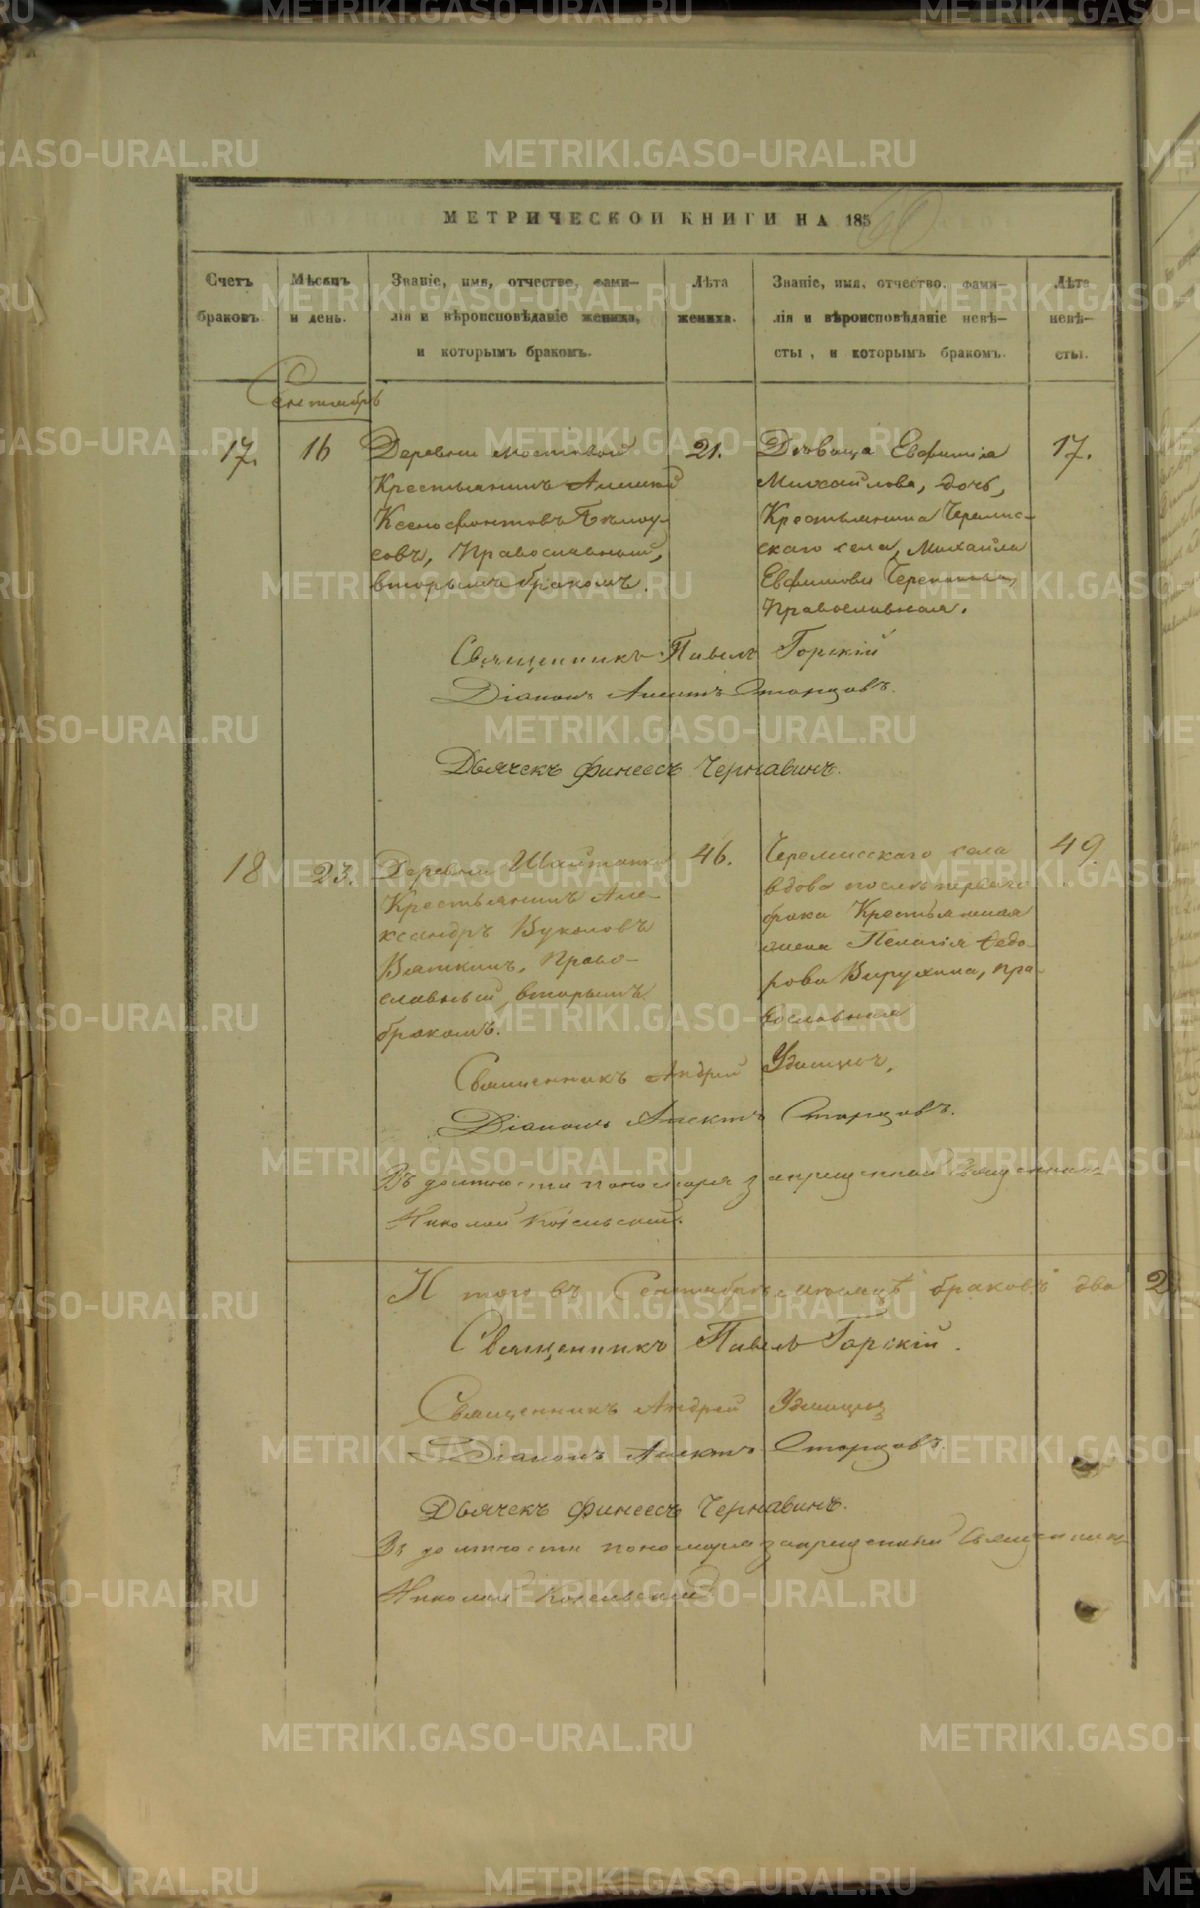 МЕТРИЧЕСКОЙ КНИГИ НА 185
Счетъ браковъ.
Мѣсяцъ и день.
Званіе, имя, отчество, фами-
лія и вѣроисповѣданіе жениха,
и которымъ бракомъ.
Лѣта жениха.
Званіе, имя, отчество, фами-
лія и вѣроисповѣданіе невѣ-
сты, и которымъ бракомъ.
Лѣта невѣ-
сты.
Сентябрь
17.
16
Деревни Мостовой
Крестьянинъ Алексей
Ксенофонтовъ Бѣлоу-
совъ, Православный,
вторымъ бракомъ.
21.
Дѣвица Евфимія
Михайлова, дочь,
Крестьянина Черемис-
скаго села, Михаила
Евфимова Черепанова,
Православная.
17.
Священникъ Павелъ Горскій
Діаконъ Алектъ Старцовъ.
Дьячекъ Финеесъ Чернавинъ.
18
23.
Деревни Шайтанки
Крестьянинъ Але-
ксандръ Вуколовъ
Вяткинъ, Право-
славный, вторымъ
бракомъ.
46.
Черемисскаго села
вдова послѣ перваго
брака Крестьянская
жена Пелагія Ѳедо-
рова Вирухина, пра-
вославная
49.
Священникъ Андрей Удинцов,
Діаконъ Алектъ Старцовъ.
Въ должности пономаря запрещенный Священник
Николай Козельский.
Итого въ Сентябрѣ месяцѣ браковъ два 2
Священникъ Павелъ Горскій.
Священникъ Андрей Удинцов
Діаконъ Алектъ Старцовъ.
Дьячекъ Финеесъ Чернавинъ.
Въ должности пономаря запрещенный Священник
Николай Козельский
METRIKI.GASO-URAL.RU